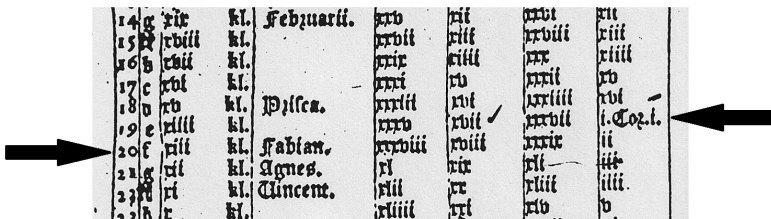 14 g xix kl. Februarii. xxv xii xxvi xii
15 xviii kl. xxvii xiii xxviii xiii
16 b xvii kl. xxix xiiii xxx xiiii
17 c xvi kl. xxxi xv xxxii xv
18 d xv kl. Prisca. xxxiii xvi xxxiiii xvi
19 e xiiii kl. xxxv xvii xxxvii i.Cor.i.
20 f xiii kl. Fabian. xxxviii xviii xxxix ii
21 g xii kl. Agnes. xl xix xli iii
xi kl. Uincent. xlii xx xliii iiii
b x kl. xliiii xxi xlv v